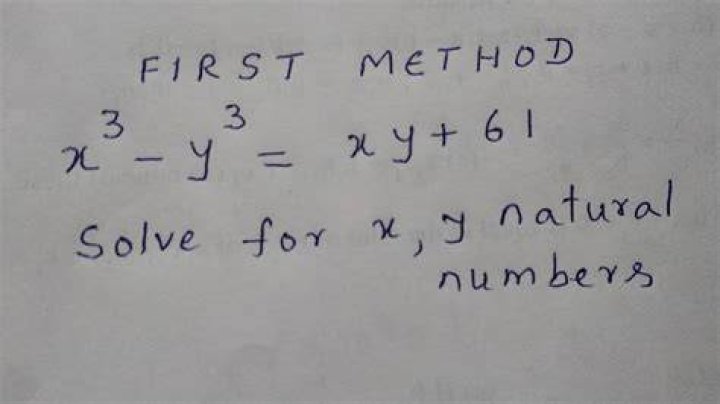 FIRST METHOD
x³ - y³ = xy + 61
Solve for x, y natural
numbers